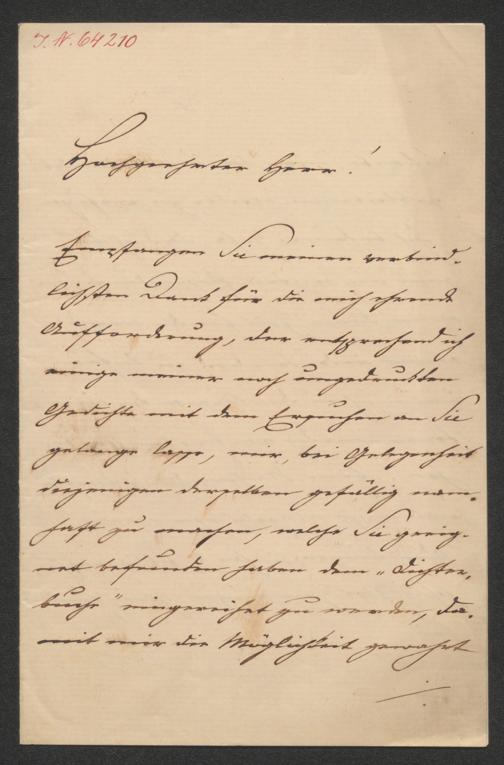 I. N. 64210
Hochgeehrter Herr!
Empfangen Sie meinen verbind-
lichsten Dank für die mich ehrende
Aufforderung, der entsprechend ich
einige meiner noch ungedruckten
Gedichte mit dem Ersuchen an Sie
gelangen lasse, mir, bei Gelegenheit
diejenigen derselben gefällig nam-
haft zu machen, welche Sie geeig-
net befunden haben dem „Dichter-
buche" eingereihet zu werden, da-
mit mir die Möglichkeit gewahrt
./.